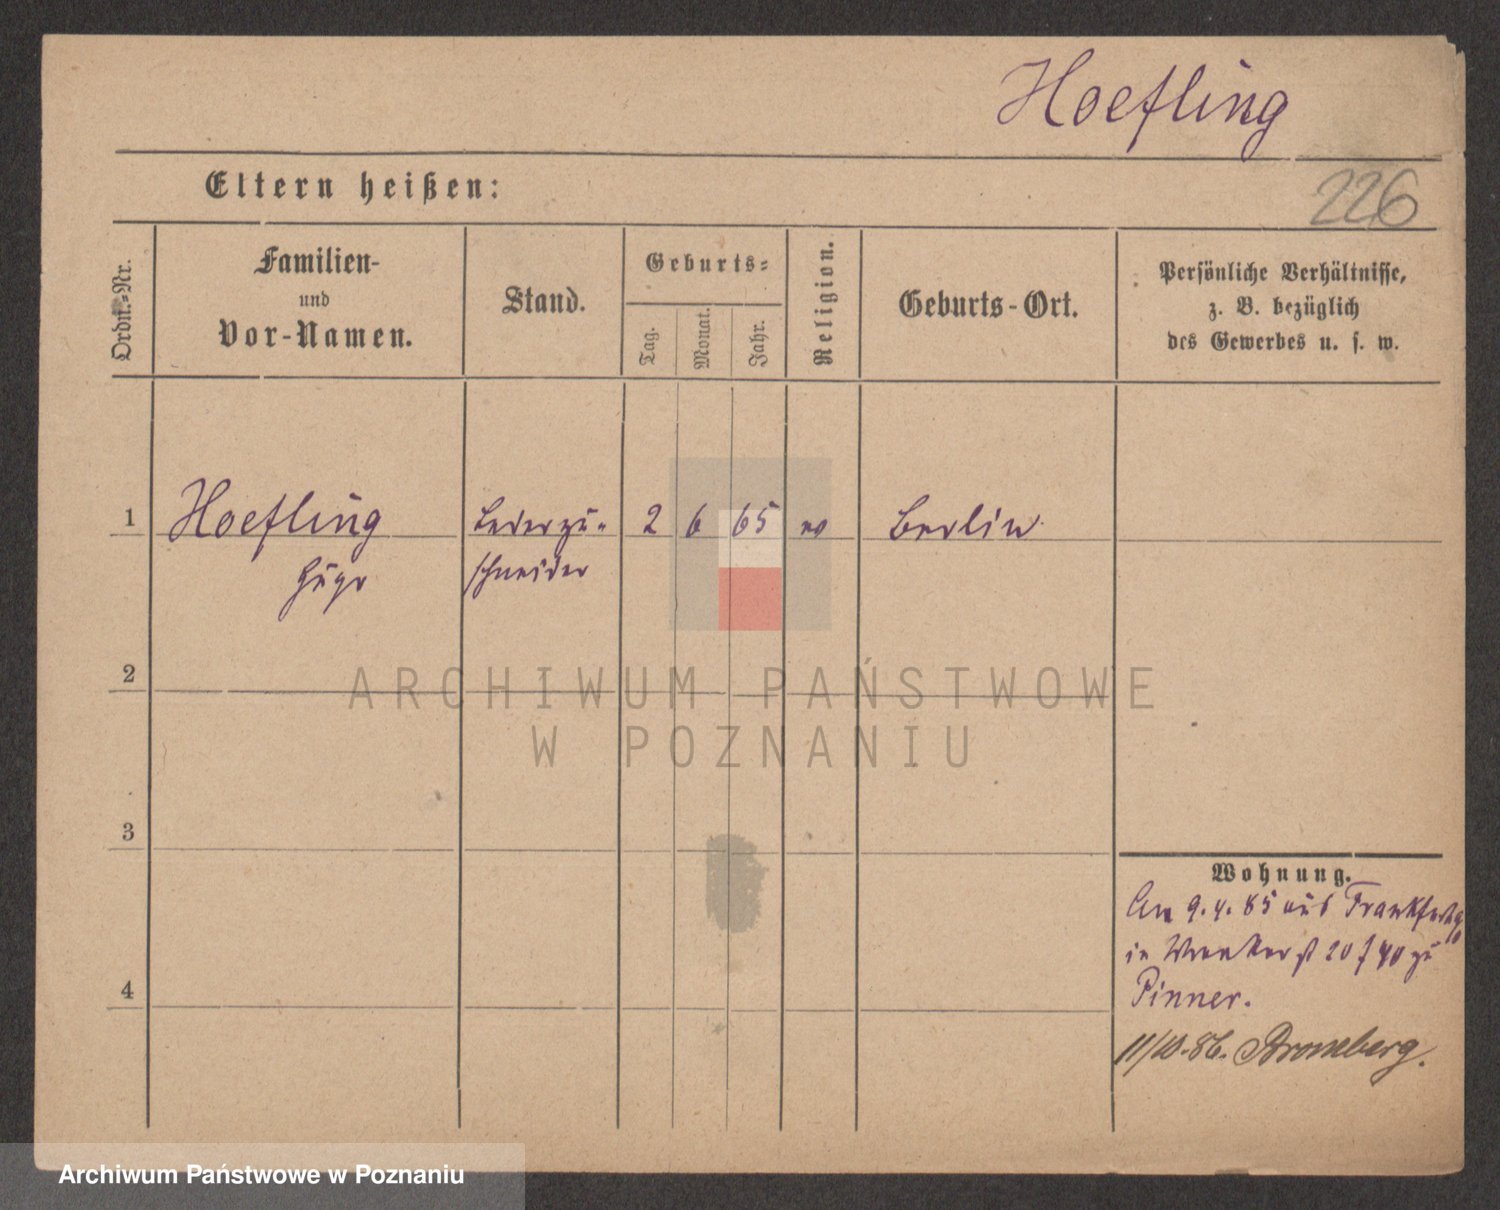 Hoefling
Eltern heißen:
226
Ordn.-Nr.
Familien-
und
Vor-Namen.
Stand.
Geburts-
Tag.
Monat.
Jahr.
Religion.
Geburts-Ort.
Persönliche Verhältnisse,
z. B. bezüglich
des Gewerbes u. s. w.
1
Hoefling
Hugo
Lederzu-
schneider
2 6 65 ev
Berlin
2
ARCHIWUM PAŃSTWOWE
W POZNANIU
3
Wohnung.
Am 9. 4. 85 aus
in 20 f 40 zu
Pinner.
4
11/10.86. Bromberg.
Archiwum Państwowe w Poznaniu